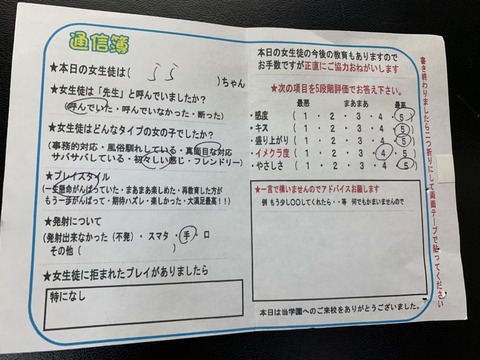 通信簿
★本日の女生徒は( らら )ちゃん
★女生徒は「先生」と呼んでいましたか?
(呼んでいた・呼んでいなかった・断った)
★女生徒はどんなタイプの女の子でしたか?
(事務的対応・風俗馴れしている・真面目な対応
サバサバしている・初々しい感じ・フレンドリー)
★プレイスタイル
(一生懸命がんばっていた・まあまあ楽しめた・再教育した方が
もう一歩がんばって・期待ハズレ・楽しかった・大満足最高!!)
★発射について
(発射出来なかった(不発)・スマタ・手・口
その他( )
★女生徒に拒まれたプレイがありましたら
特になし
本日の女生徒の今後の教育もありますので
お手数ですが正直にご協力おねがいします
★次の項目を5段階評価でお答え下さい。
最悪 まあまあ 最高
・感度 ( 1 ・ 2 ・ 3 ・ 4 ・ 5 )
・キス ( 1 ・ 2 ・ 3 ・ 4 ・ 5 )
・盛り上がり ( 1 ・ 2 ・ 3 ・ 4 ・ 5 )
・イメクラ度 ( 1 ・ 2 ・ 3 ・ 4 ・ 5 )
・やさしさ ( 1 ・ 2 ・ 3 ・ 4 ・ 5 )
★一言で構いませんのでアドバイスお願します
例 もう少し〇〇してくれたら・・等 何でもかまいませんので
本日は当学園へのご来校をありがとうございました。
書き終わりましたら二つ折りにして両面テープで貼ってください